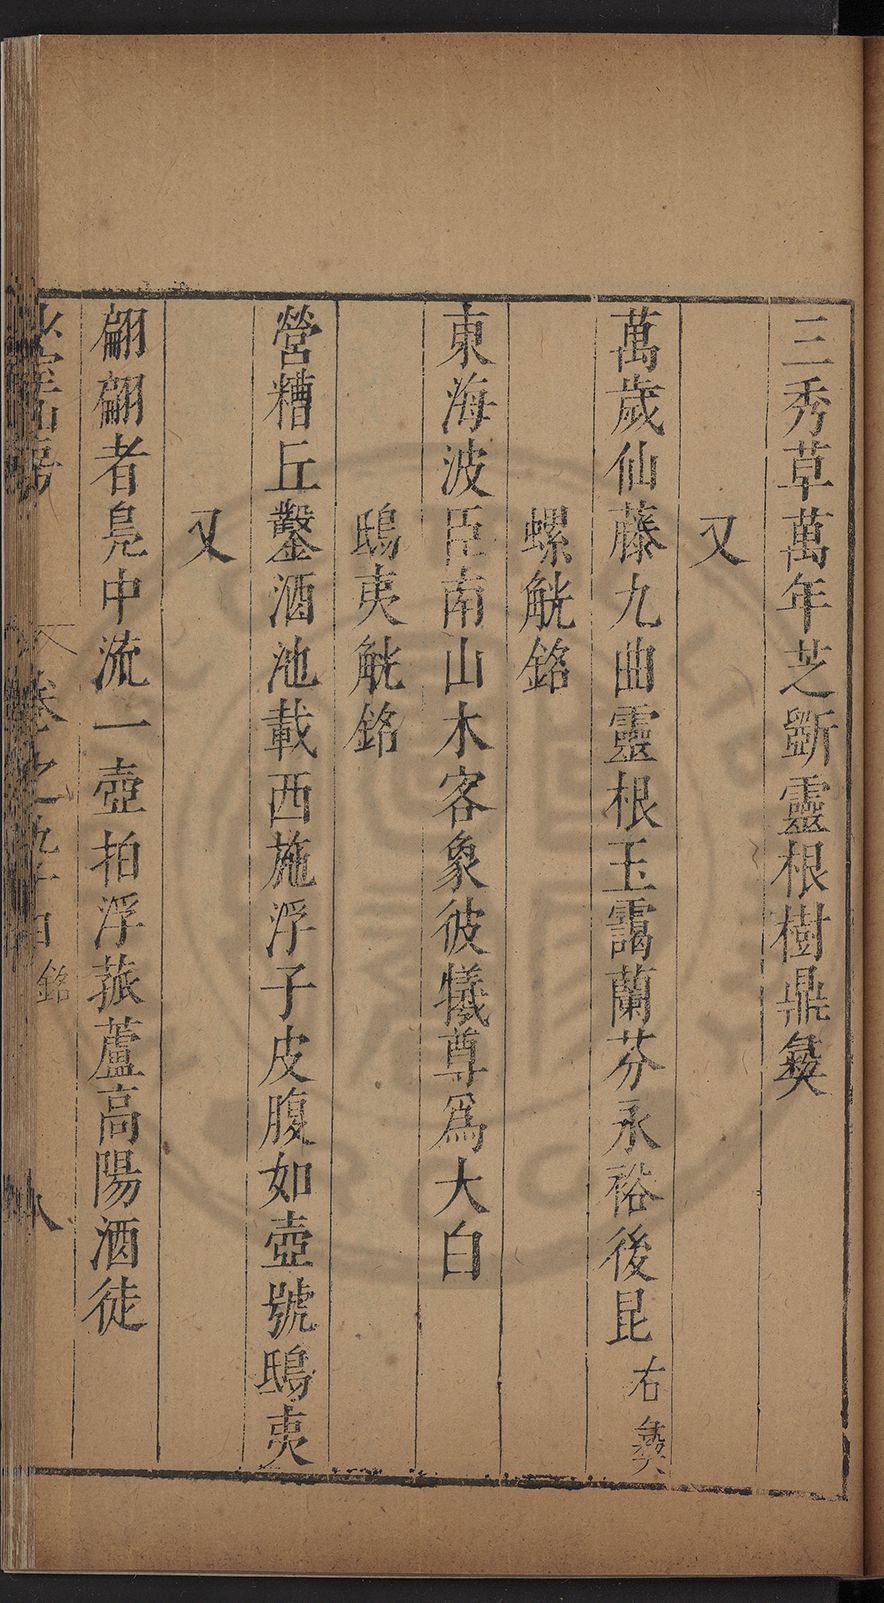 三秀草萬年芝斲靈根樹鼎彝
又
萬歲仙藤九曲靈根玉靄蘭芬永裕後昆 右彝
螺觥銘
東海波臣南山木客象彼犧尊爲大白
鴟夷觥銘
營糟丘鑿酒池載西施浮子皮腹如壺號鴟夷
又
翩翩者鳧中流一壺拍浮菰蘆高陽酒徒
卷之九十四 銘 八